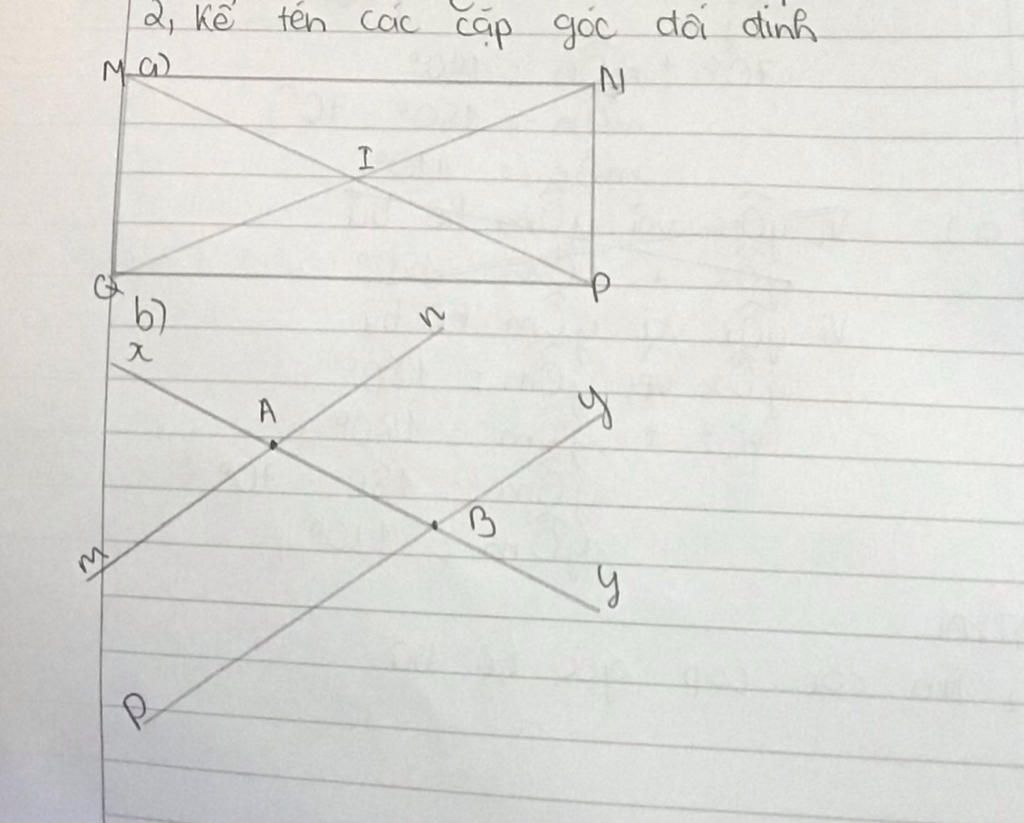 2, Kể tên các cặp góc đối đỉnh
M a) N
I
Q P
b)
x n
A y
B
m y
P